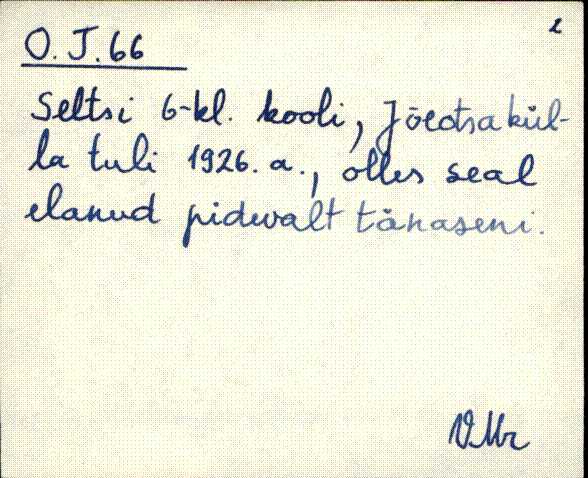 2
O. J. 66
Seltsi 6-kl. kooli, Jõeotsakül-
la tuli 1926. a., olles seal
elanud pidevalt tänaseni.
VMr